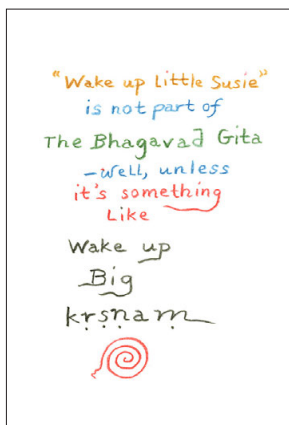 “Wake up Little Susie”
is not part of
The Bhagavad Gita
–well, unless
it's something
Like
Wake up
Big
kṛṣṇaṃ